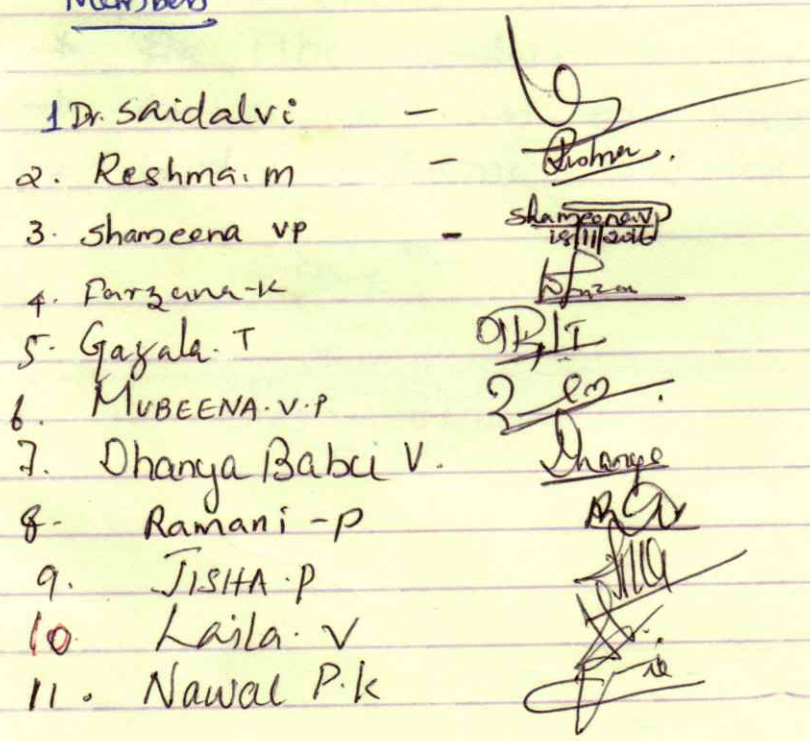 Members
1 Dr. Saidalvi -
2. Reshma. m -
3. Shameena VP - Shameena VP
18/11/2016
4. Farzana-K
5. Gazala. T
6. MUBEENA. V. P
7. Dhanya Babu V. Dhanya
8- Ramani - P
9. JISHA. P
10 Laila. V
11. Nawal P.k